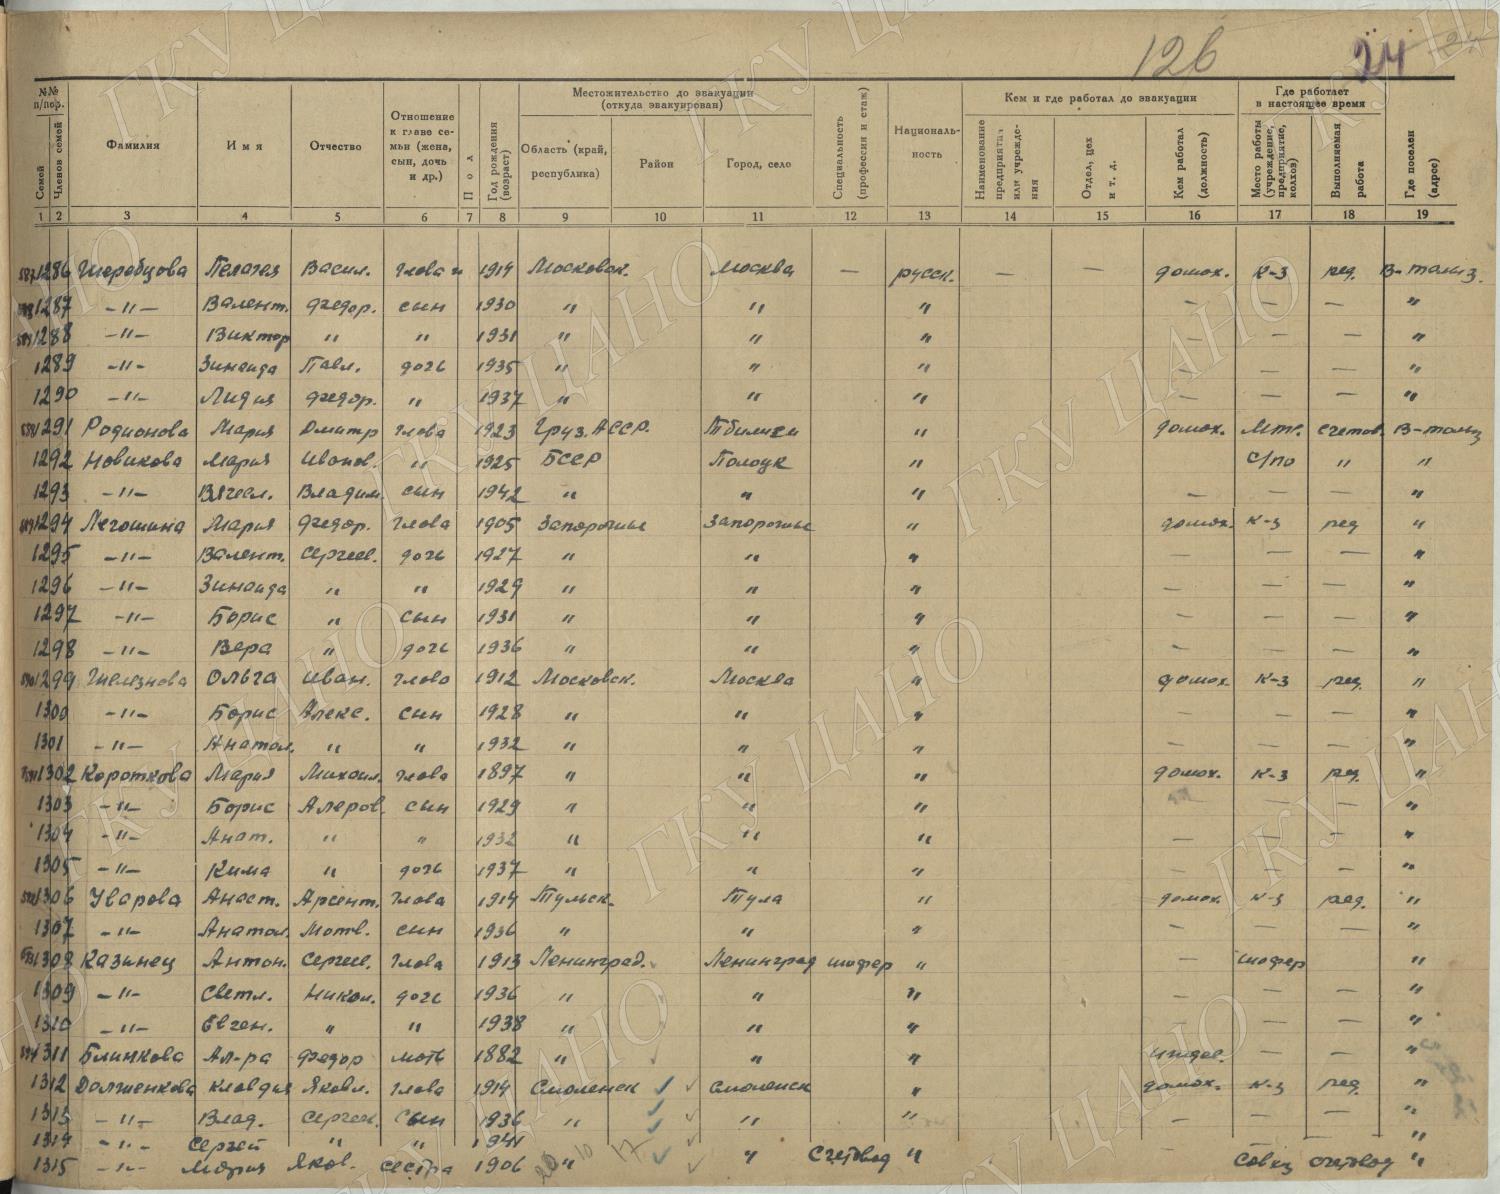 126 24
№№ п/пор. Местожительство до эвакуации (откуда эвакуирован) Кем и где работал до эвакуации Где работает в настоящее время
Семей Членов семей Фамилия Имя Отчество Отношение к главе семьи (жена, сын, дочь и др.) Пол Год рождения (возраст) Область (край, республика) Район Город, село Специальность (профессия и стаж) Национальность Наименование предприятия или учреждения Отдел, цех и т. д. Кем работал (должность) Место работы (учреждение, предприятие, колхоз) Выполняемая работа Где поселен (адрес)
1 2 3 4 5 6 7 8 9 10 11 12 13 14 15 16 17 18 19
1286 Жеребцова Пелагея Васил. глава 1914 Московск. Москва — русск. — — домох. к-з ряд.
1287 -"- Валент. Федор. сын 1930 " " " — — — "
1288 -"- Виктор " " 1931 " " " — — — "
1289 -"- Зинаида Павл. дочь 1935 " " " — — — "
1290 -"- Лидия Федор. " 1937 " " " — — — "
1291 Родионова Мария Дмитр глава 1923 Груз. АССР. Тбилиси " домох. Мтс. счетов.
1292 Новикова Мария Иванов. " 1925 БССР Полоцк " с/по " "
1293 -"- Вячесл. Владим. сын 1942 " " " — — — "
1294 Легошина Мария Федор. глава 1905 Запорожье Запорожье " домох. к-з ряд "
1295 -"- Валент. Сергеев. дочь 1927 " " " — — — "
1296 -"- Зинаида " " 1929 " " " — — — "
1297 -"- Борис " сын 1931 " " " — — — "
1298 -"- Вера " дочь 1936 " " " — — — "
1299 Железнова Ольга Иван. глава 1912 Московск. Москва " домох. к-з ряд. "
1300 -"- Борис Алекс. сын 1928 " " " — — — "
1301 -"- Анатол. " " 1932 " " " — — — "
1302 Короткова Мария Михаил. глава 1897 " " " домох. к-з ряд. "
1303 -"- Борис сын 1929 " " " — — "
1304 -"- Анат. " " 1932 " " " — — — "
1305 -"- Кима " дочь 1937 " " " — — — "
1306 Уварова Анаст. Арсент. глава 1914 Тульск. Тула " домох. к-з ряд. "
1307 -"- Анатол. Матв. сын 1936 " " " — — — "
1308 Казинец Антон. Сергеев. глава 1913 Ленинград. Ленинград шофер " — шофер "
1309 -"- Светл. Никол. дочь 1936 " " " — — — "
1310 -"- Евген. " " 1938 " " " — — — "
1311 Блинкова Ал-ра Федор мать 1882 " " " иждев. — — "
1312 Долженкова Клавдия Яковл. глава 1914 Смоленск Смоленск " домох. к-з ряд. "
1313 -"- Влад. Сергеев. сын 1936 " " " — — — "
1314 -"- Сергей " " 1941 "
1315 -"- Мария Яков. сестра 1906 " " Счетовод " — Совхз счетовод "
ГКУ ЦАНО